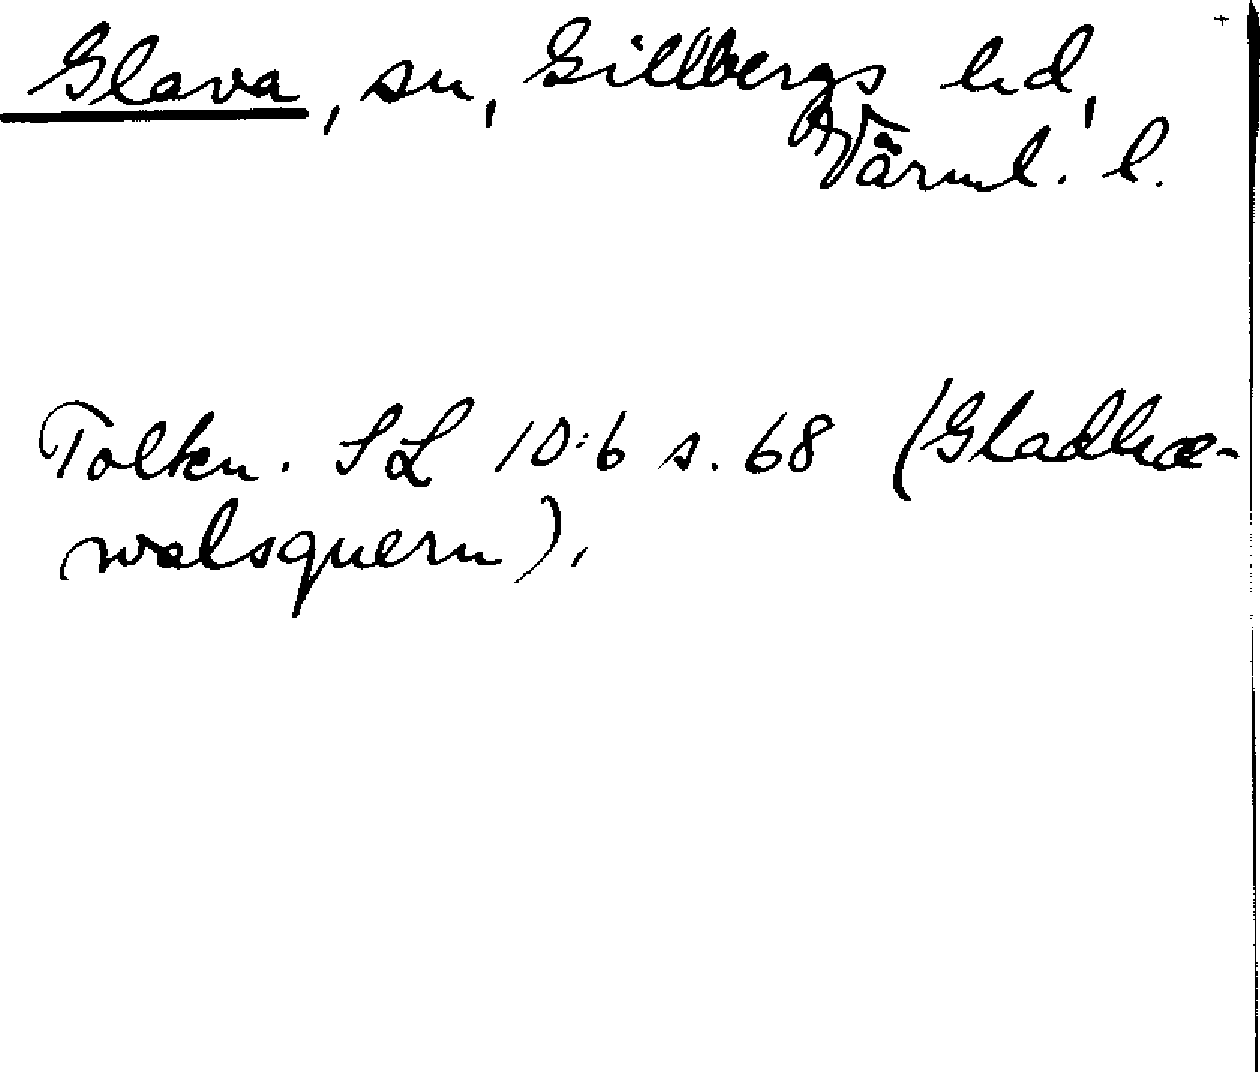 Glava, sn, Gillbergs hd,
Värml. l.
Tolkn. SL 10:6 s. 68 (Gladhæ-
walsquern).